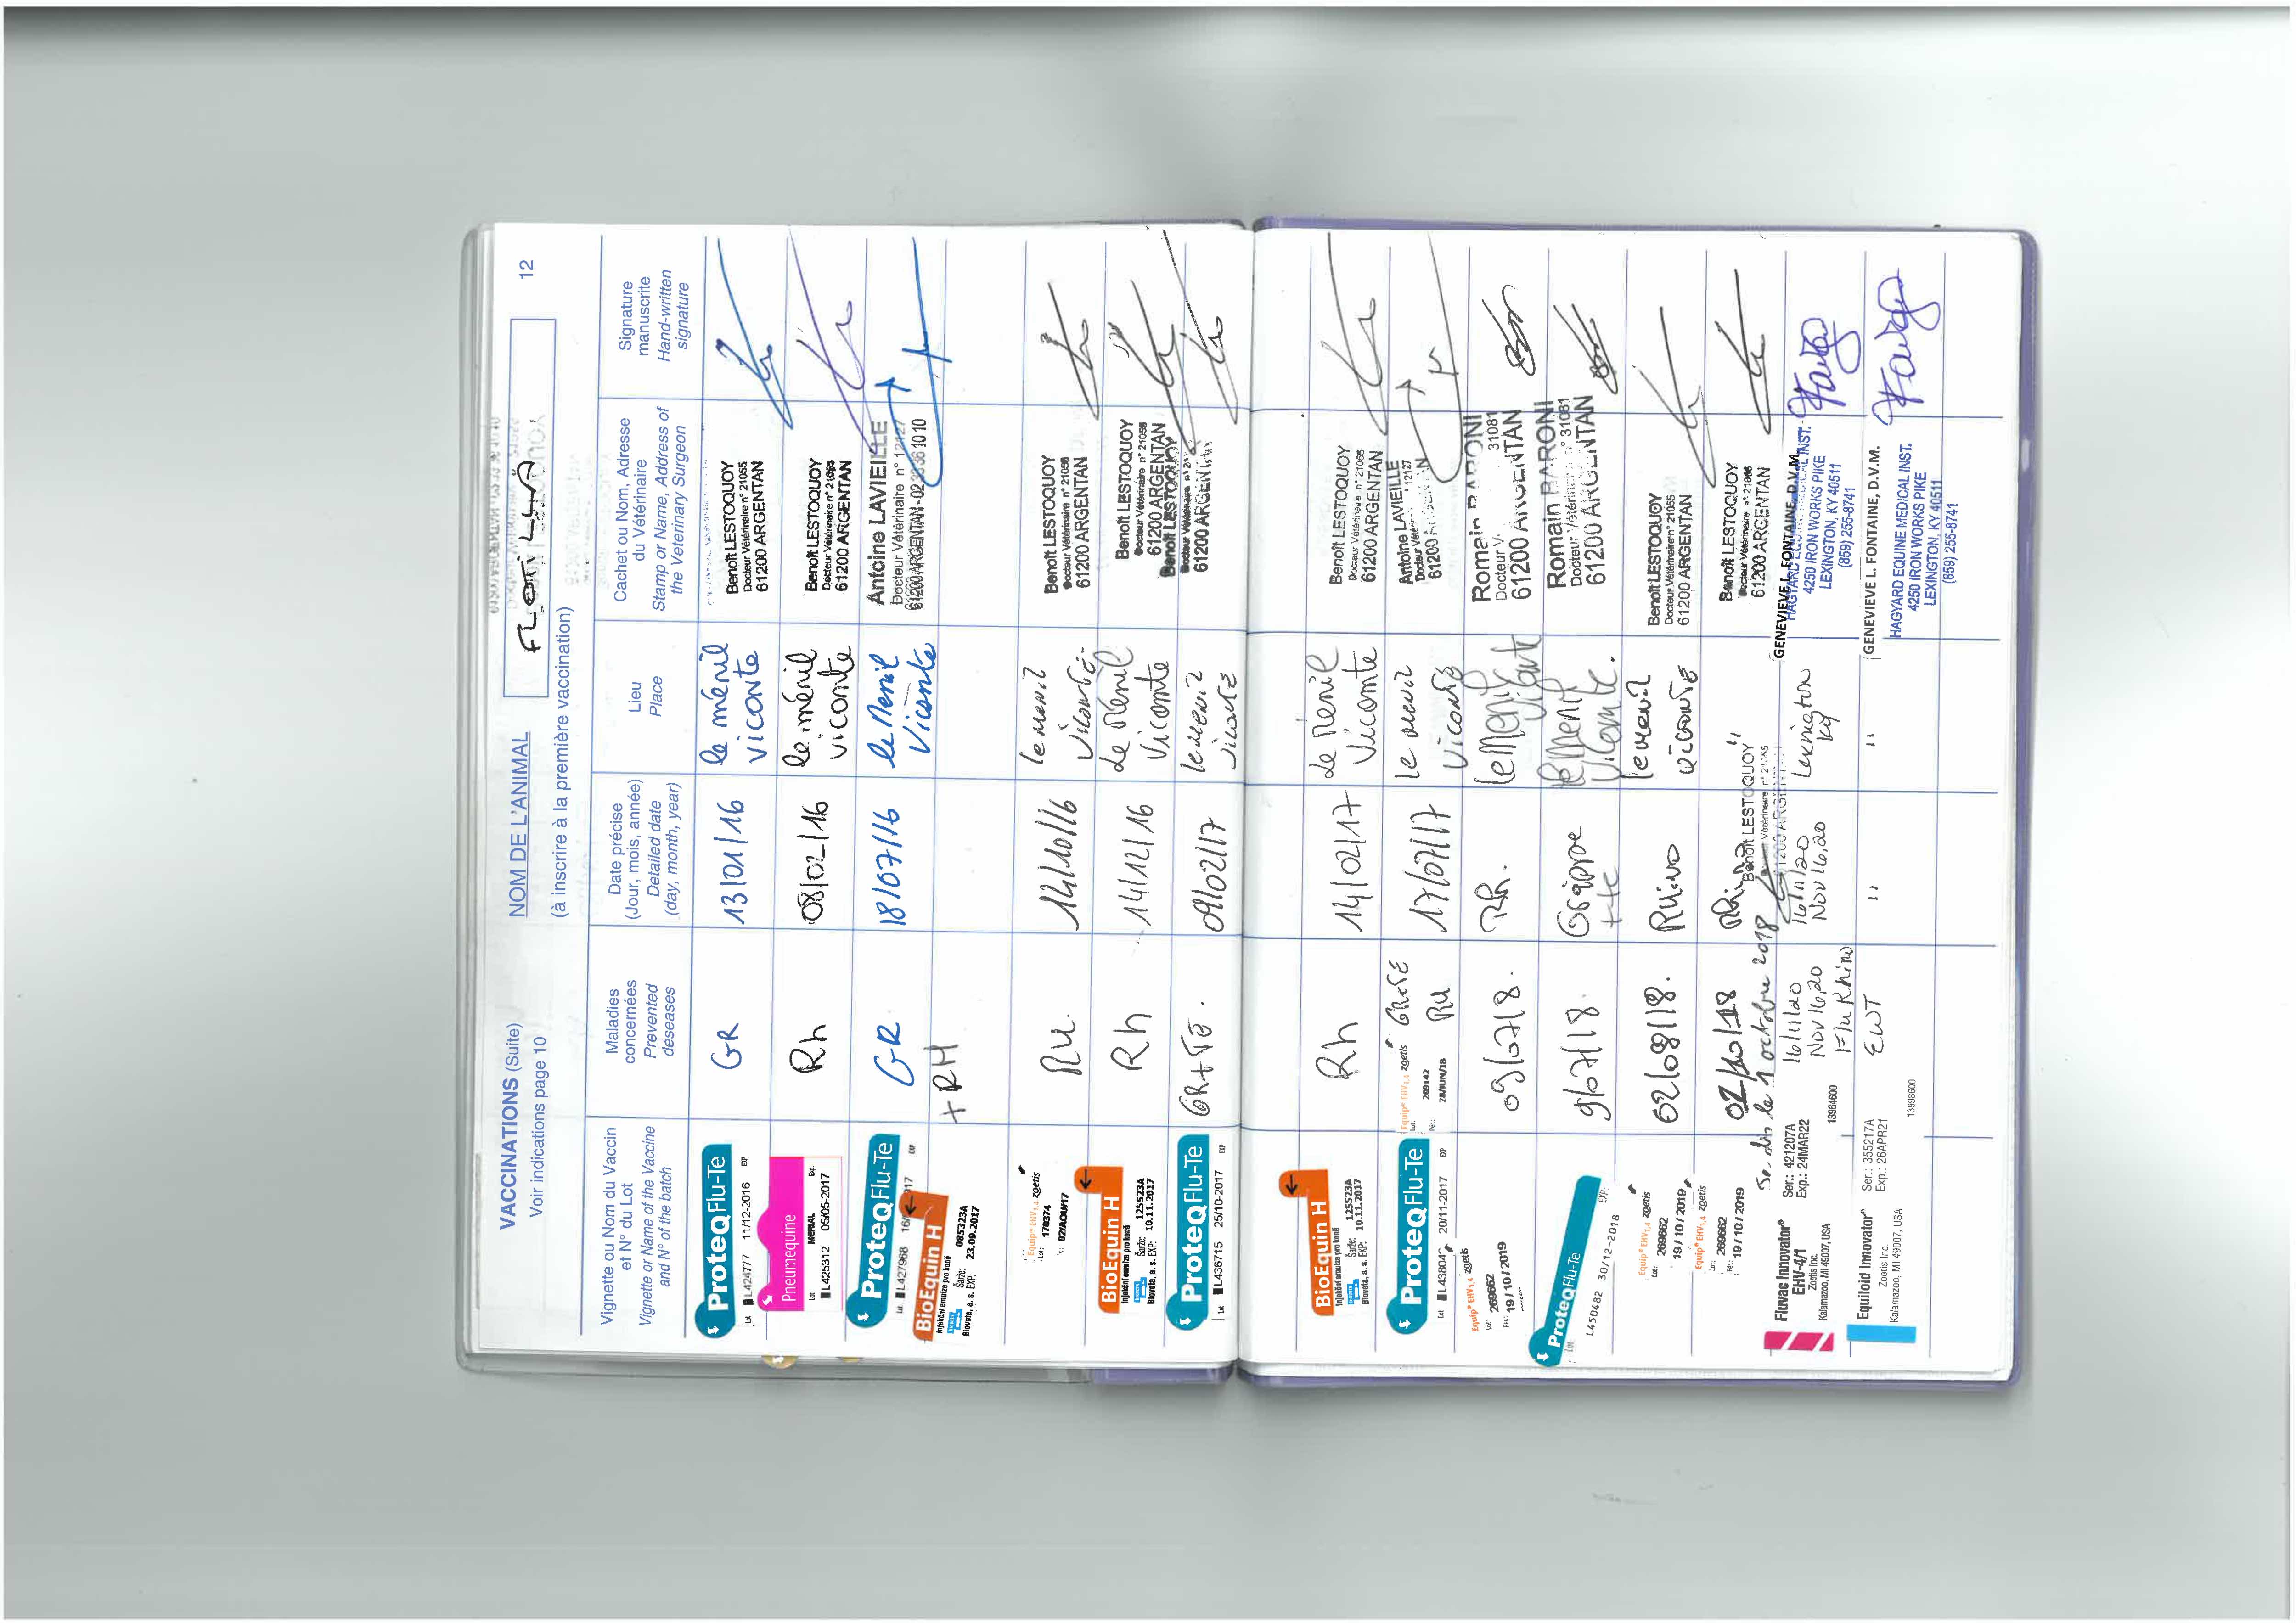 VACCINATIONS (Suite)
Voir indications page 10
NOM DE L'ANIMAL
FLOTILLA
12
(à inscrire à la première vaccination)
Vignette ou Nom du Vaccin
et N° du Lot
Vignette or Name of the Vaccine
and N° of the batch
Maladies
concernées
Prevented
deseases
Date précise
(Jour, mois, année)
Detailed date
(day, month, year)
Lieu
Place
Cachet ou Nom, Adresse
du Vétérinaire
Stamp or Name, Address of
the Veterinary Surgeon
Signature
manuscrite
Hand-written
signature
ProteqFlu-Te
Lot L424777 11/12-2016 EXP
GR
13/01/16
le ménil
Viconte
Benoît LESTOQUOY
Docteur Vétérinaire n° 21055
61200 ARGENTAN
Pneumequine
Lot MERIAL Exp.
L425312 05/05-2017
Rh
08/02/16
le ménil
viconte
Benoît LESTOQUOY
Docteur Vétérinaire n° 21055
61200 ARGENTAN
ProteqFlu-Te
Lot L427968
EXP
GR
18/07/16
le Menil
Viconte
Antoine LAVIEILLE
Docteur Vétérinaire n° 12127
61200 ARGENTAN - 02 33 36 10 10
BioEquin H
Injekční emulze pro koně
Šarže: 085323A
EXP: 23.09.2017
Bioveta, a. s.
+ RH
Equip® EHV1,4 zoetis
Lot: 178374
02/AOU/17
Ru
14/10/16
le menil
Viconte
Benoît LESTOQUOY
Docteur Vétérinaire n° 21055
61200 ARGENTAN
BioEquin H
Injekční emulze pro koně
Šarže: 125523A
EXP: 10.11.2017
Bioveta, a. s.
Rh
14/12/16
Le Ménil
Vicomte
Benoît LESTOQUOY
Docteur Vétérinaire n° 21055
61200 ARGENTAN
ProteqFlu-Te
Lot L436715 25/10-2017 EXP
GR+TE.
le menil
Viconte
Benoît LESTOQUOY
61200 ARGENTAN
BioEquin H
Injekční emulze pro koně
Šarže: 125523A
EXP: 10.11.2017
Bioveta, a. s.
Rh
14/02/17
Le Ménil
Vicomte
Benoît LESTOQUOY
Docteur Vétérinaire n° 21055
61200 ARGENTAN
Equip® EHV1,4 zoetis
Lot: 209142
Pér.: 28/JUN/18
ProteqFlu-Te
20/11-2017 EXP
Ru
17/07/17
le menil
Viconte
Antoine LAVIEILLE
12127
61200
Equip® EHV1,4 zoetis
Lot: 269662
Pér.: 19/10/2019
09/07/18.
Rh.
le Menil
Vicomte
Romain BARONI
31081
61200 ARGENTAN
ProteqFlu-Te
Lot L450482 30/12-2018 EXP
9/07/18.
Grippe
+te
le Menil
Vicomte.
Romain BARONI
Docteur Vétérinaire n° 31081
61200 ARGENTAN
Equip® EHV1,4 zoetis
Lot: 269662
19/10/2019
02/08/18.
Rhino
le menil
Viconte
Benoît LESTOQUOY
Docteur Vétérinaire n° 21055
61200 ARGENTAN
Equip® EHV1,4 zoetis
Lot: 269662
Pér.: 19/10/2019
02/10/18
Rhino
"
Benoît LESTOQUOY
Docteur Vétérinaire n° 21055
61200 ARGENTAN
le 1 octobre 2018
Benoît LESTOQUOY
Fluvac Innovator®
EHV-4/1
Zoetis Inc.
Kalamazoo, MI 49007, USA
Ser.: 421207A
Exp.: 24MAR22
13964600
16/11/20
Nov 16,20
Flu Rhino
16/11/20
Nov 16,20
Lexington
Ky
GENEVIEVE L. FONTAINE, D.V.M.
HAGYARD EQUINE MEDICAL INST.
4250 IRON WORKS PIKE
LEXINGTON, KY 40511
(859) 255-8741
Equiloid Innovator®
Zoetis Inc.
Kalamazoo, MI 49007, USA
Ser.: 355217A
Exp.: 26APR21
13998600
EWT
"
"
GENEVIEVE L. FONTAINE, D.V.M.
HAGYARD EQUINE MEDICAL INST.
4250 IRON WORKS PIKE
LEXINGTON, KY 40511
(859) 255-8741